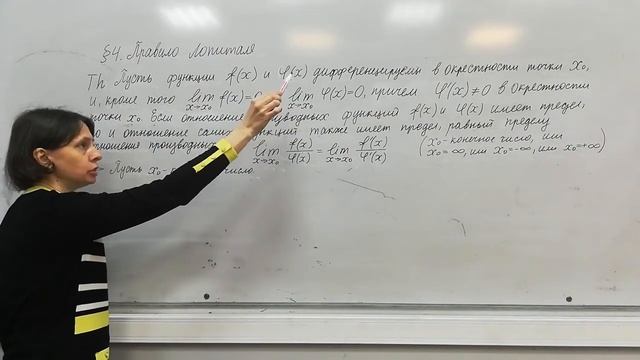 §4. Правило Лопиталя
Th. Пусть функции f(x) и φ(x) дифференцируемы в окрестности точки x₀,
и, кроме того lim x→x₀ f(x)=0 lim x→x₀ φ(x)=0, причем φ(x)≠0 в окрестности
точки x₀. Если отношение производных функций f(x) и φ(x) имеет предел,
то и отношение самих функций также имеет предел, равный пределу
отношения производных lim x→x₀ f(x)/φ(x) = lim x→x₀ f'(x)/φ'(x) (x₀-конечное число, или
x₀=∞, или x₀=-∞, или x₀=+∞)
Пусть x₀- число.